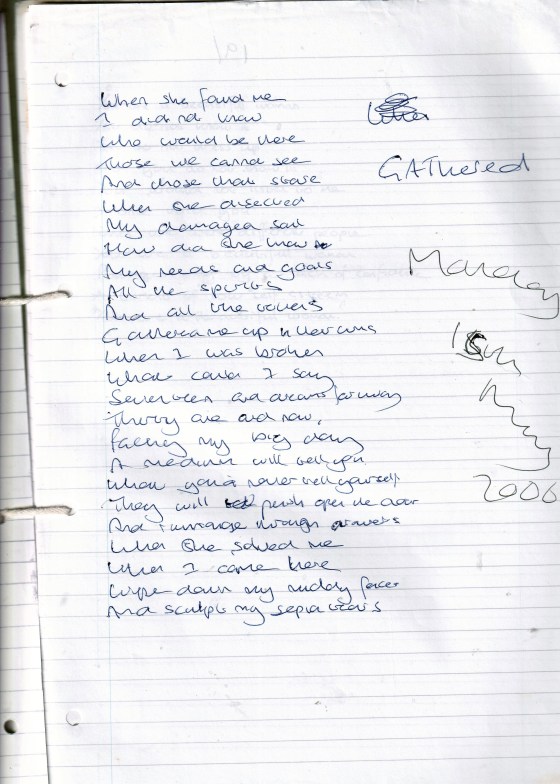 When she found me
I did not know
Who would be there
Those we cannot see
And those that stare
When she dissected
My damaged soul
How did she know
My needs and goals
All the spirits
And all the others
Gathered me up in their arms
When I was broken
What could I say
Seventeen and dreams far away
Thirty one and now,
facing my big day
A medium will tell you
What you'd never tell yourself
They will push open the door
And rummage through drawers
When she solved me
When I came here
Wipe down my muddy face
And sculpt my sepia tears
GATHered
Monday
15th
May
2006